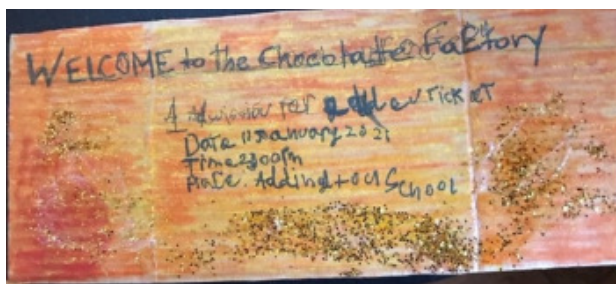 WELCOME to the Chocolate Factory
1 Admission for
Date 11 January 2021
Time 2:00pm
Place: Addingtocl School